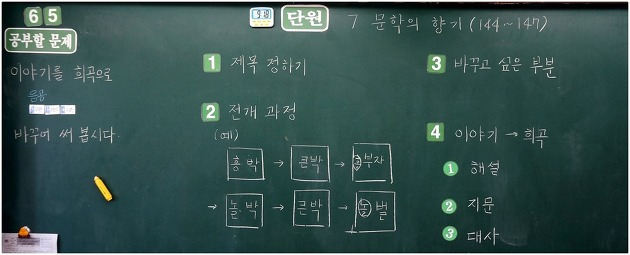 6 5
단원 7 문학의 향기 (144~147)
공부할 문제
이야기를 희곡으로
바꾸어 써 봅시다.
1 제목 정하기
2 전개 과정
(예)
흥 박 → 큰박 → 흥 부자
→ 놀.박 → 큰박 → 놀 벌
3 바꾸고 싶은 부분
4 이야기 → 희곡
1 해설
2 지문
3 대사